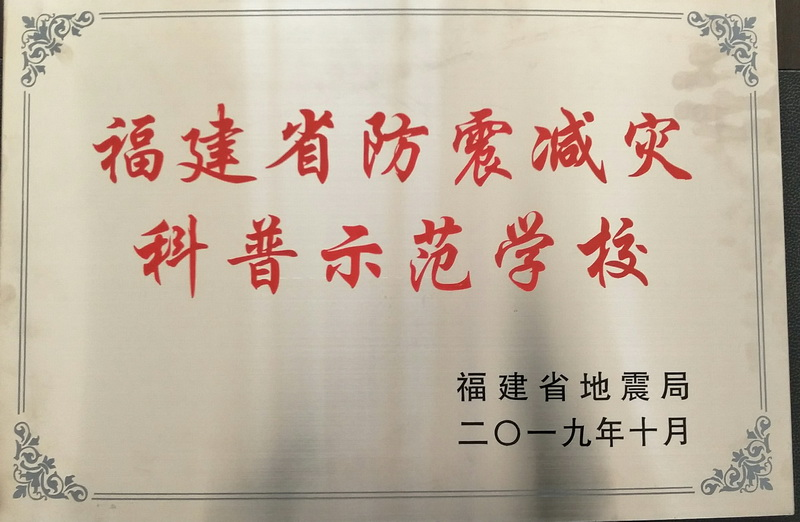 福建省防震减灾
科普示范学校
福建省地震局
二〇一九年十月